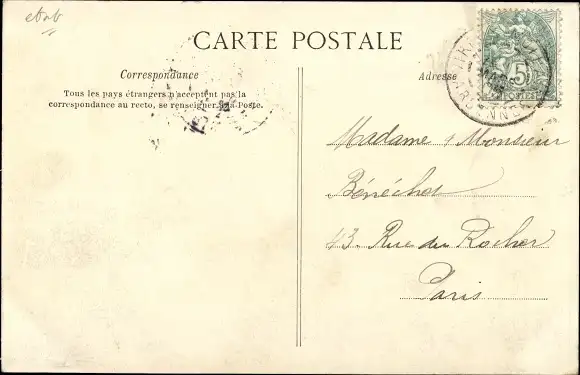 CARTE POSTALE
Correspondance
Tous les pays étrangers n'acceptent pas la
correspondance au recto, se renseigner à la Poste.
Adresse
5
POSTES
Madame & Monsieur
Bénéchet
43. Rue du Rocher
Paris